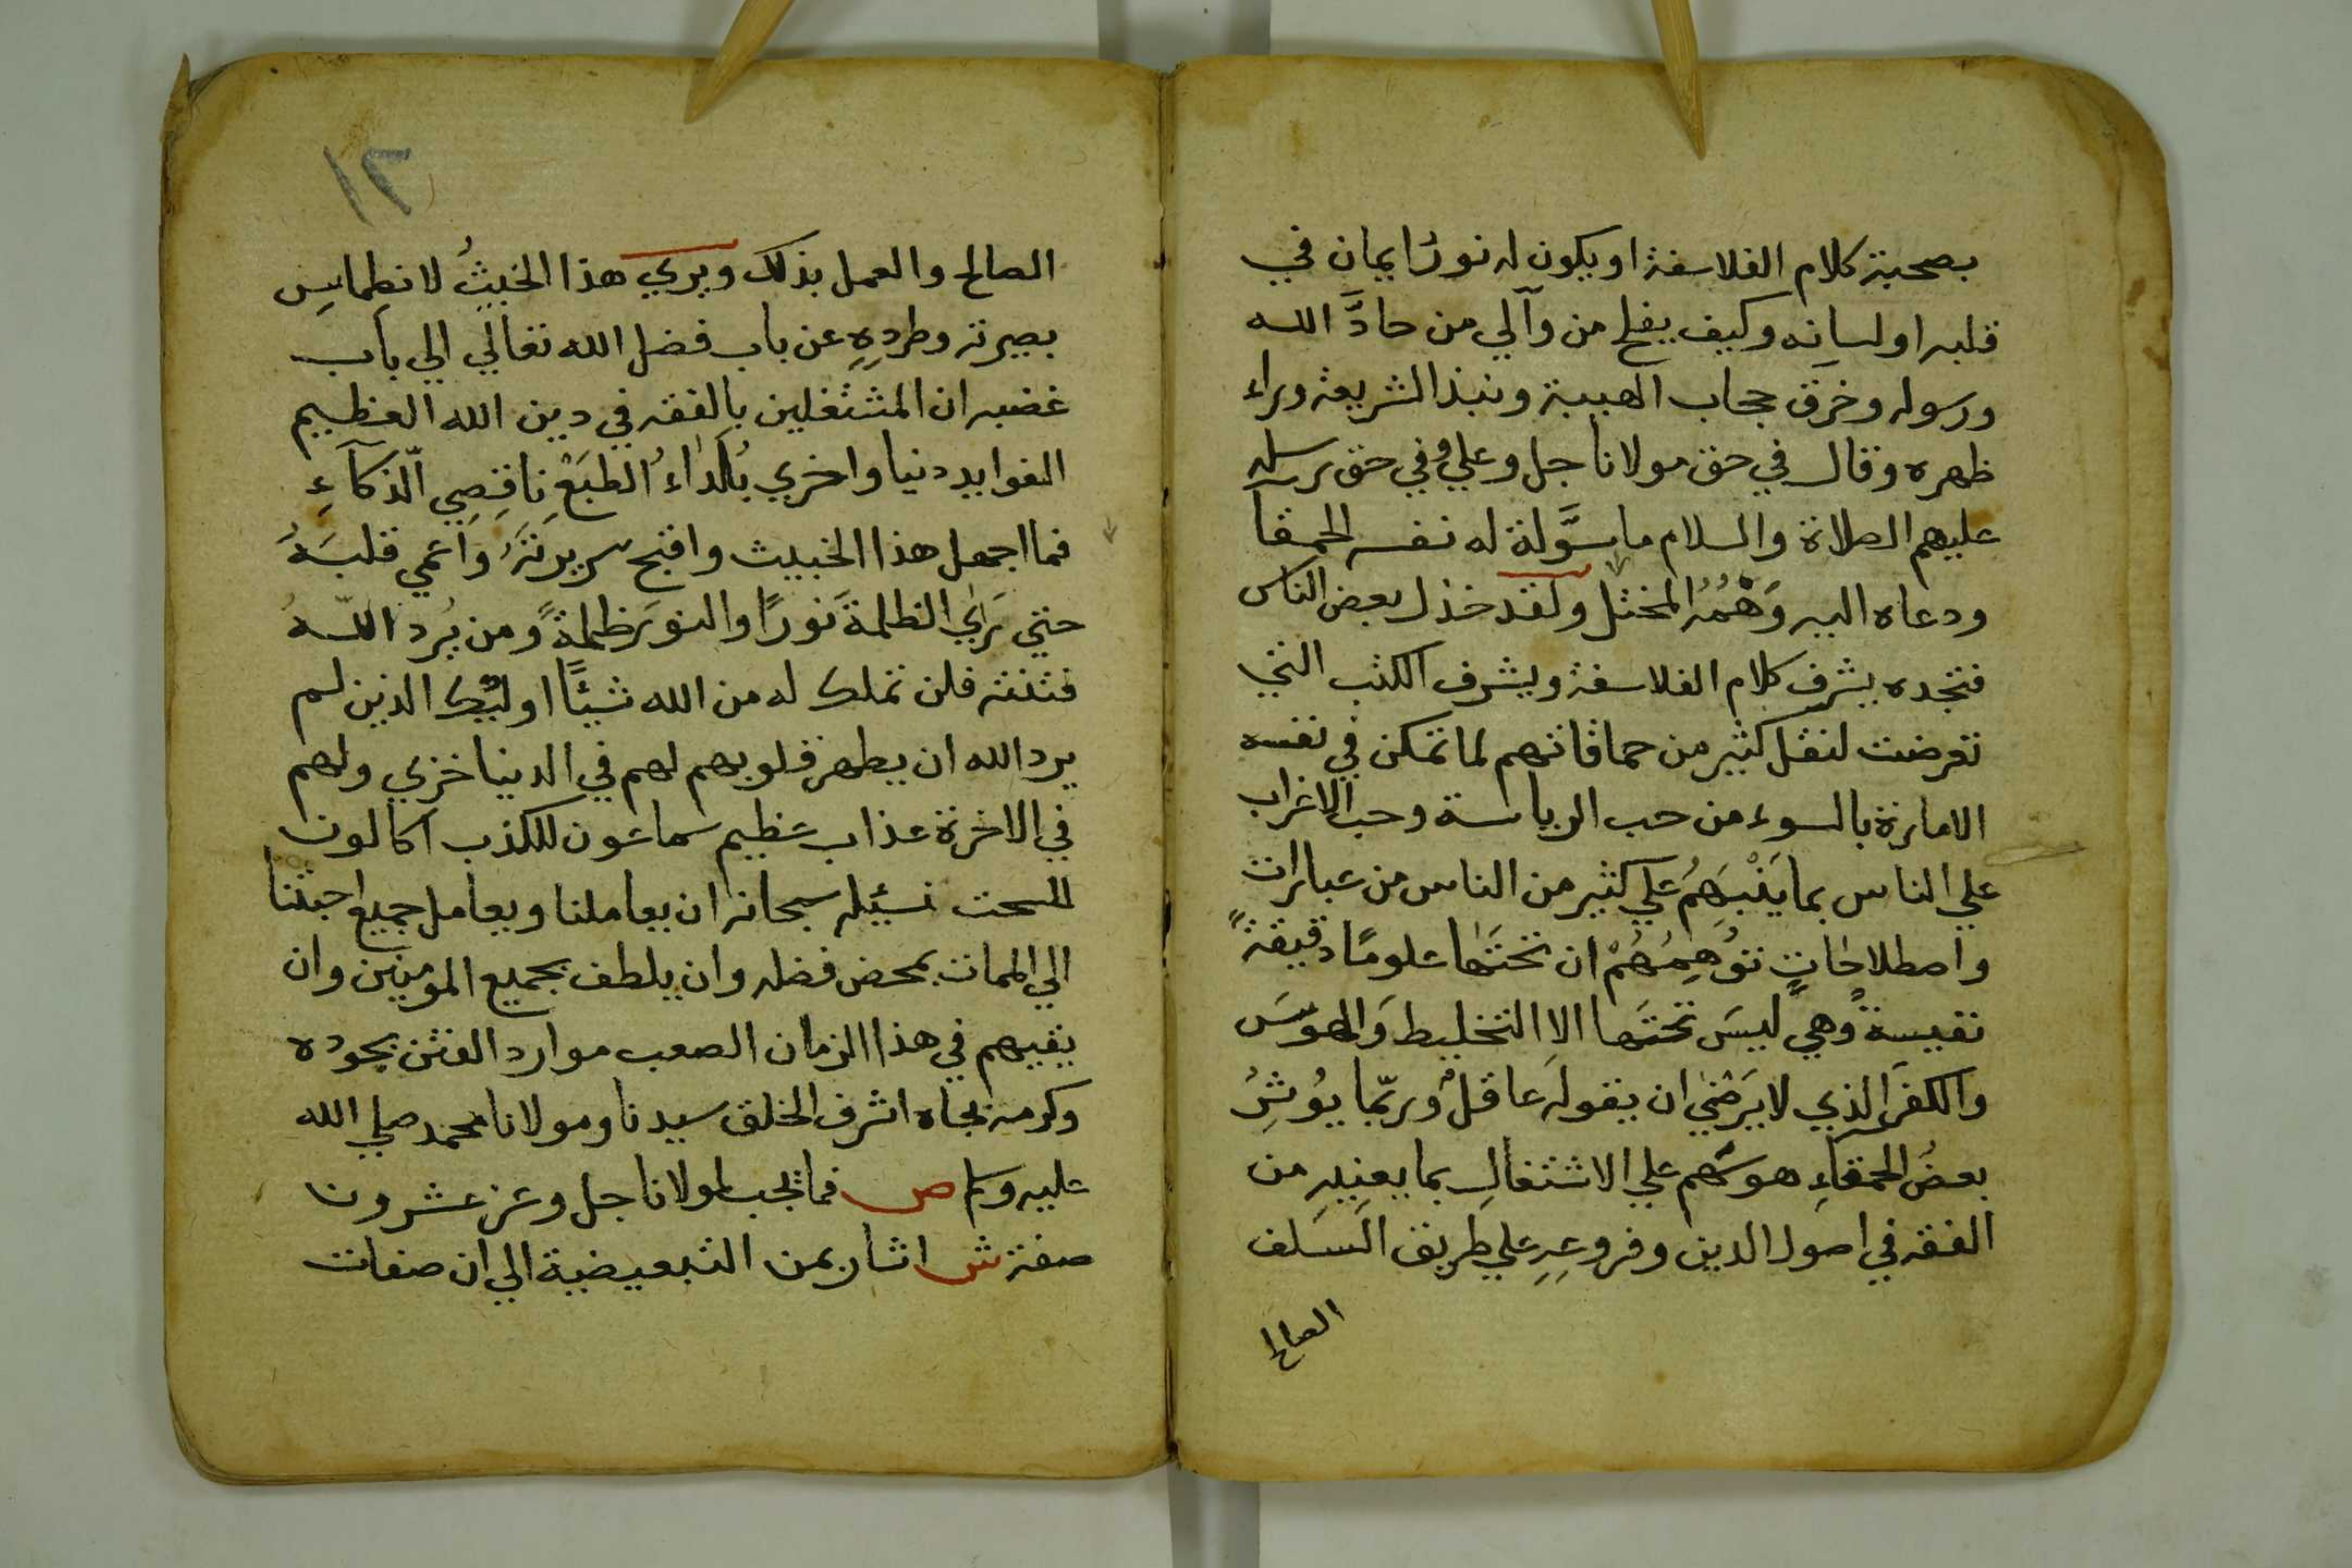 بصحبة كلام الفلاسفة او يكون له نورُ ايمان في
قلبه او لسانه وكيف يفلح من وآلي من حادَّ الله
ورسوله وخرق حجاب الهيبة ونبذ الشريعة وراء
ظهره وقال في حق مولانا جل وعلي وفي حق رسله
عليهم الصلاة والسلام ما سوَّلة له نفسه الحمقا
ودعاه اليه وَهْمُهُ المختل ولقد خذل بعض الناس
فتجده يشرف كلام الفلاسفة ويشرف الكتب التي
تعرضت لنقل كثير من حماقاتهم لما تمكن في نفسه
الامارة بالسوء من حب الرياسة وحب الاغراب
علي الناس بما يَنْبَهِمُ علي كثير من الناس من عبارات
واصطلاحَاتٍ توُهِمُهُمْ ان تحتَها علومًا دقيقةً
نفيسةً وهي ليسَ تحتَها الا التخليط وَالهوَسَ
والكفرَ الذي لا يَرْضيٰ ان يقوله عاقلٌ وربّما يوُثِرُ
بعضُ الحمقآءِ هوسَهم علي الاشتغالِ بما يعنيهِ من
الفقه في اصول الدين وفروعِهِ علي طريق السَلف
الصالح
١٢
الصالح والعمل بذلك ويري هذا الخبيثُ لانطِماسِ
بصيرته وطردِهِ عن باب فضل الله تعالي الي باب
غضبه ان المشتغلين بالفقه في دين الله العظيم
الفوايد دنيا واخري بُلَدَاءُ الطبَعْ نَاقِصِي الّذكآءِ
فما اجهل هذا الخبيث واقبح سريرتَهُ وَاعمي قلبَهُ
حتي يَرَيٰ الظلمةَ نورًا والنورَ ظلمةً ومن يُرد اللّهُ
فتنته فلن تملك له من الله شيئًا اولئك الذين لم
يرد الله ان يطهر قلوبهم لهم في الدنيا خزي ولهم
في الاخرة عذاب عظيم سماعون للكذب اكالون
للسحت نسئيله سبحانه ان يعاملنا ويعامل جميع احبتنا
الي الممات بمحض فضله وان يلطف بجميع المومنين وان
يقيهم في هذا الزمان الصعب موارد الفتن بجوده
وكرمه بجاه اشرف الخلق سيدنا ومولانا محمد صلي الله
عليه وسلم ص فما يجب لمولانا جل وعز عشرون
صفة ش اشار بمن التبعيضية الي ان صفات